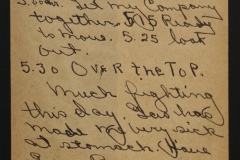 Get my Company
together. 5.15 Ready
to move. 5.25 look
out.
5.30 OVER the TOP.
Much fighting
this day. Gas has
made me very sick
at stomach. Have